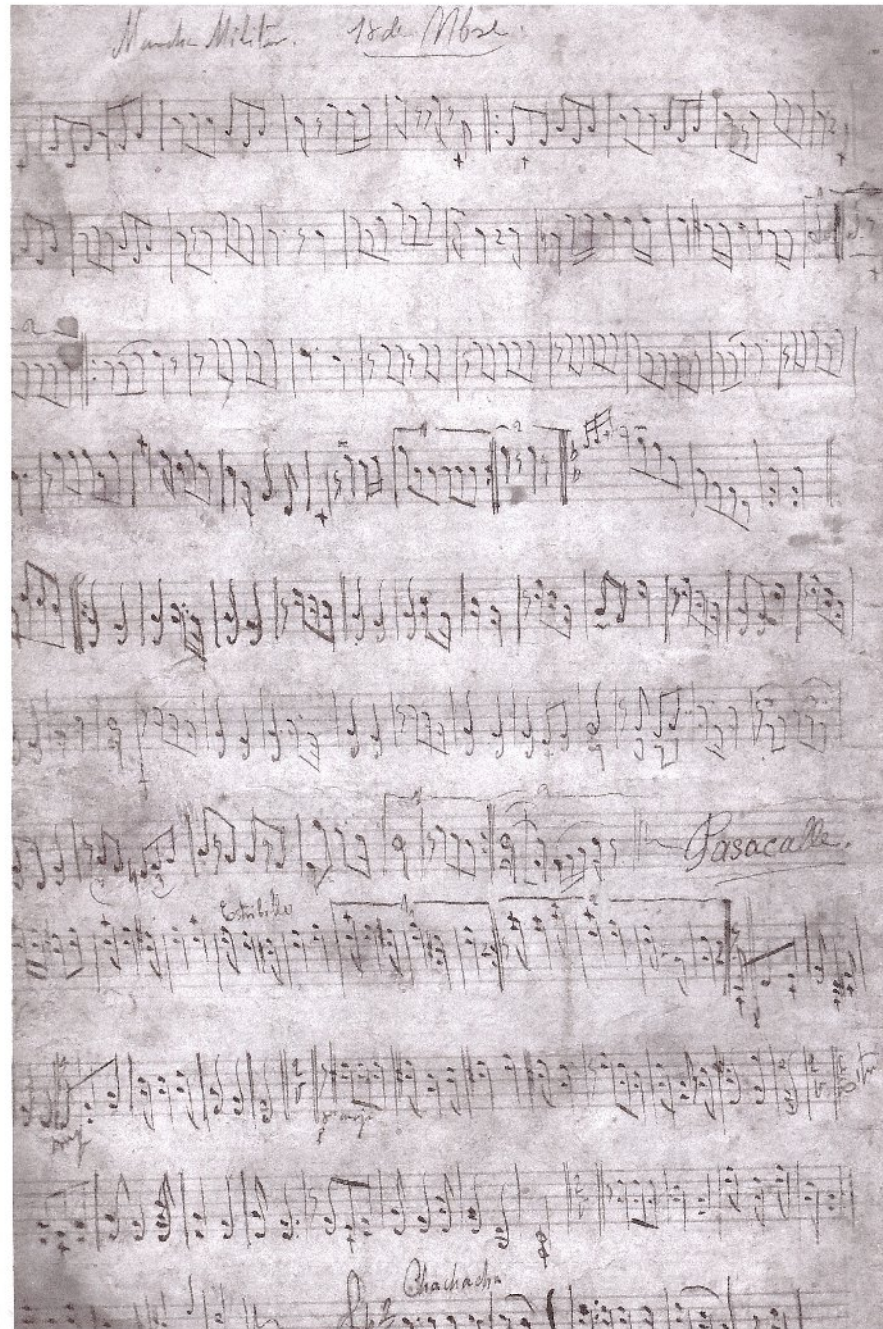 Marcha Militar. 18 de Nbre.
Pasacalle.
Estribillo
Chachacha